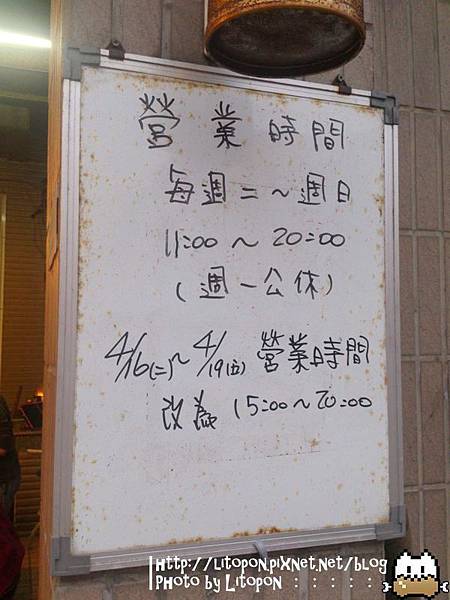 營業時間
每週二~週日
11:00 ~ 20:00
(週一公休)
4/16(二)~4/19(五) 營業時間
改為 15:00~20:00
http://litopon.pixnet.net/blog
Photo by Litopon : : : : : :